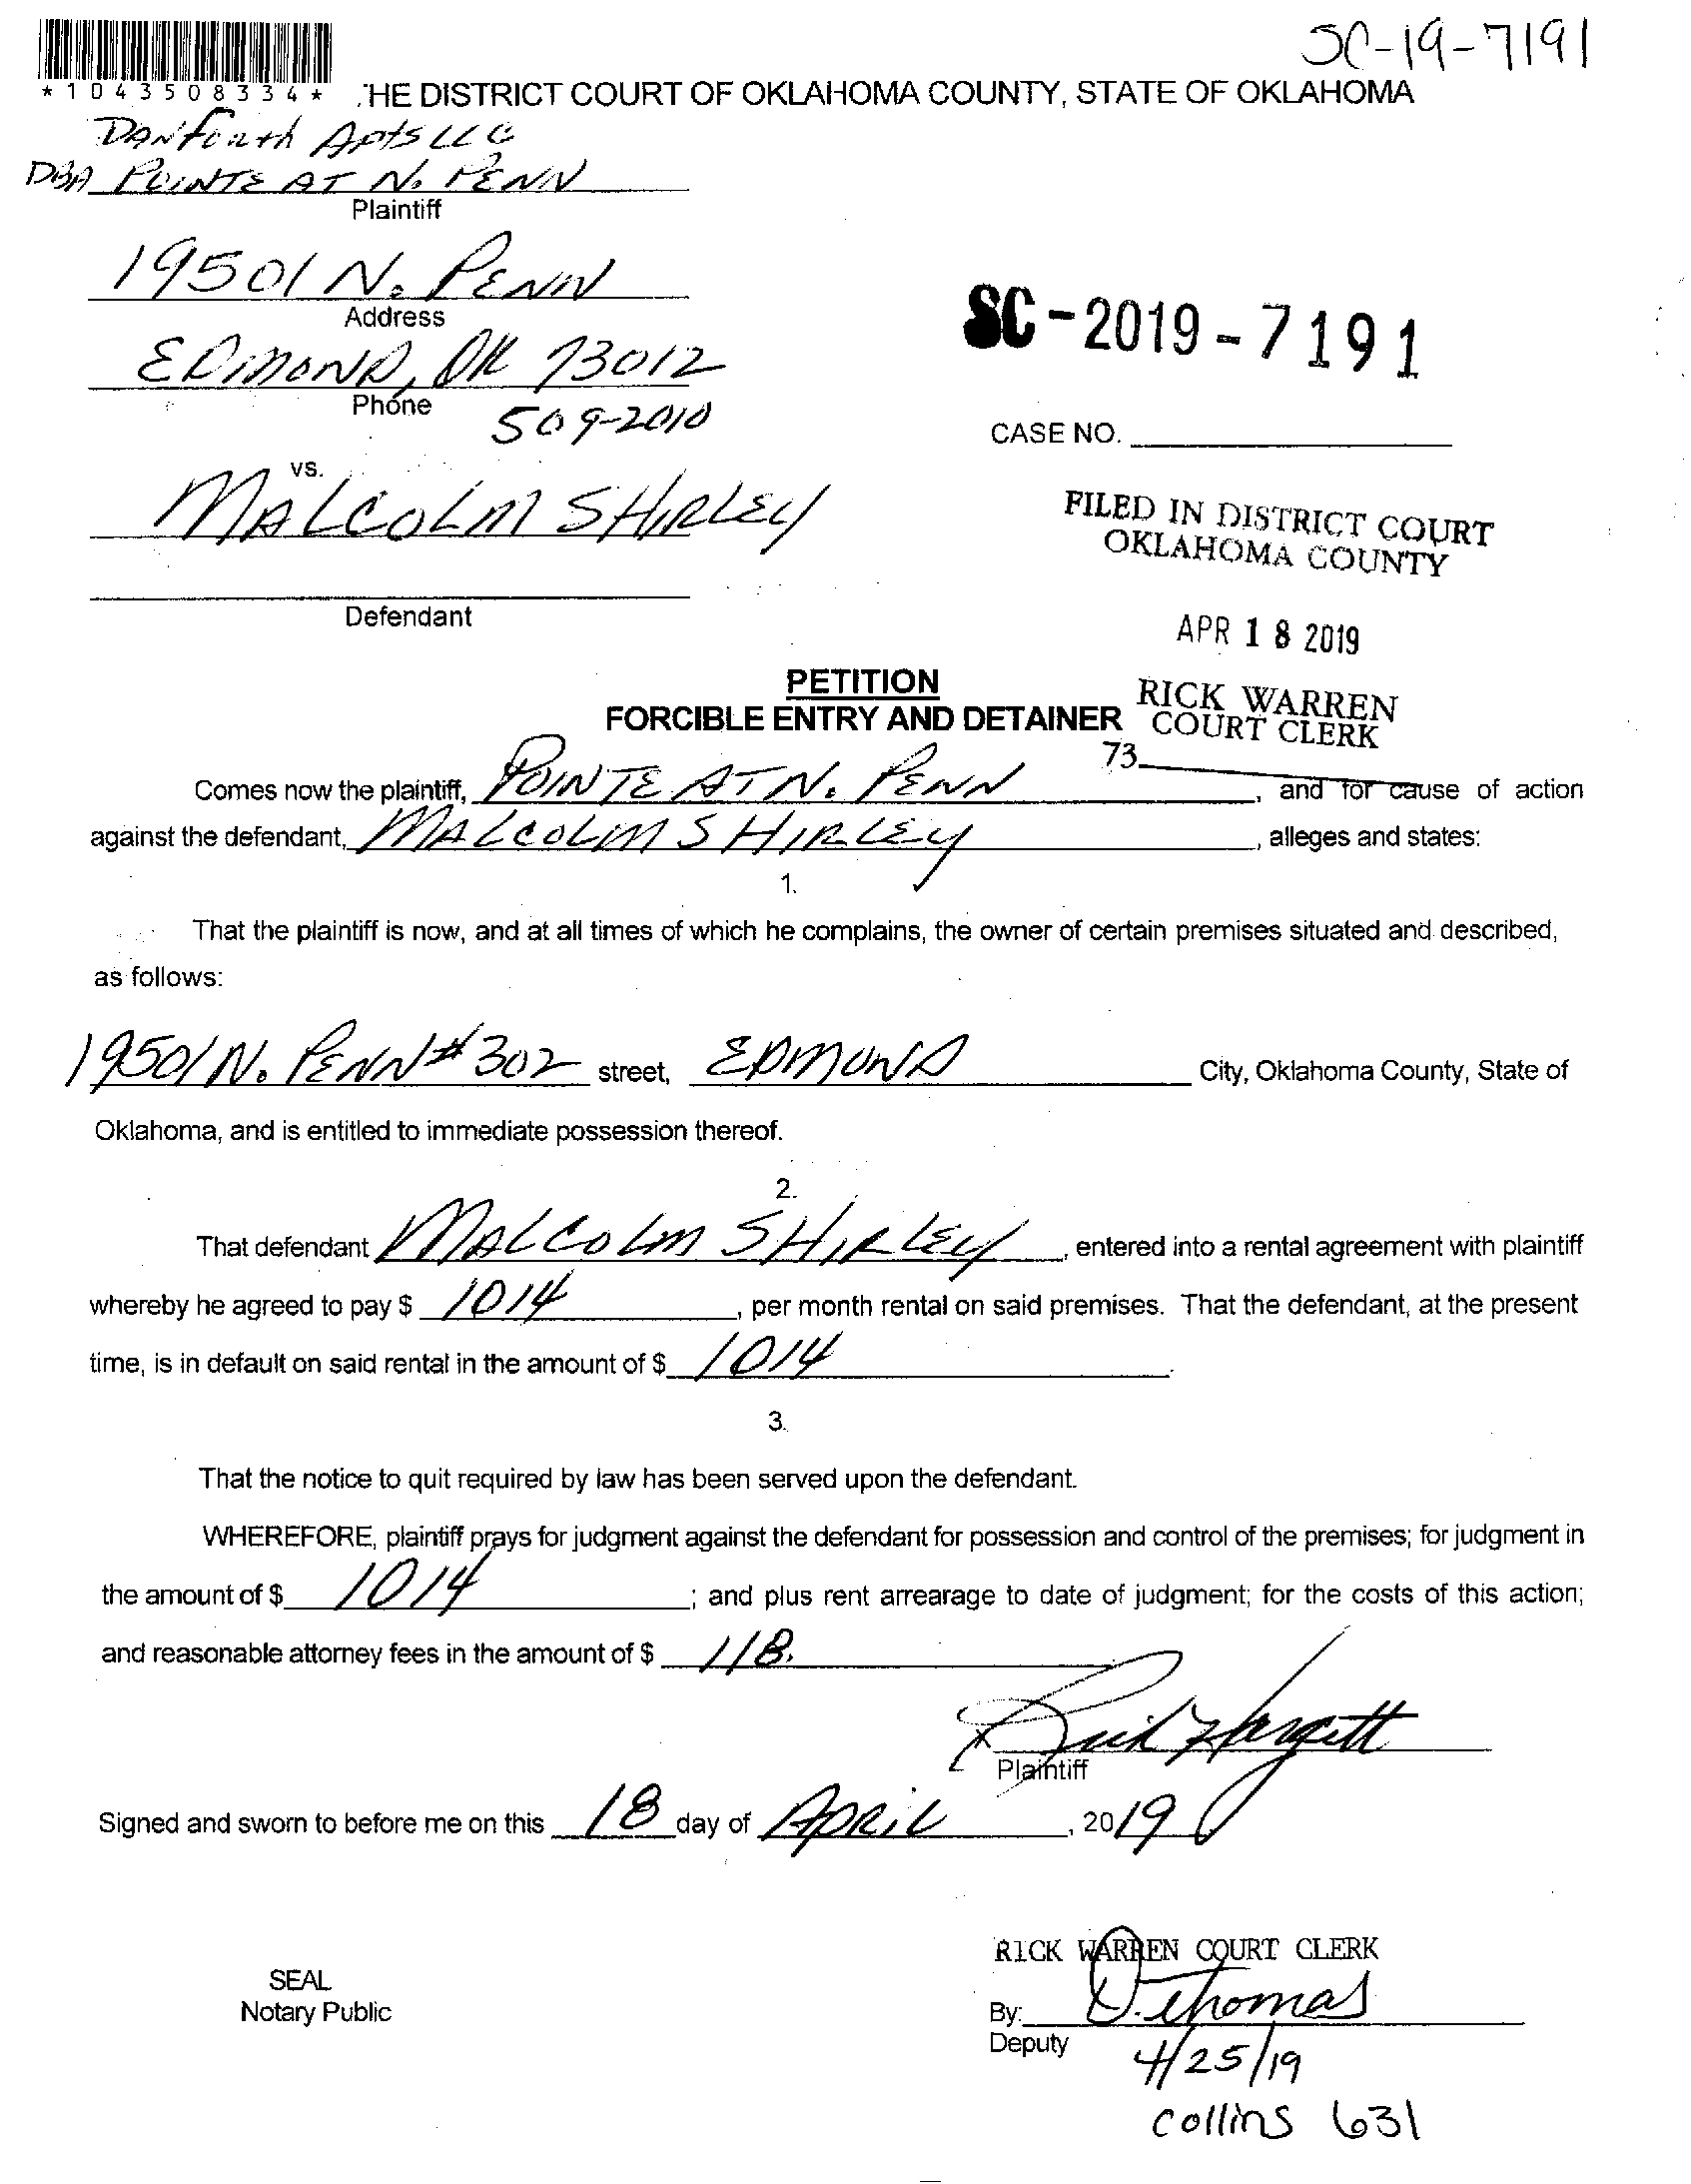 SC-19-7191
* 1 0 4 3 5 0 8 3 3 4 *
THE DISTRICT COURT OF OKLAHOMA COUNTY, STATE OF OKLAHOMA
DANFORTH APTS LLC
DBA POINTE AT N. PENN
Plaintiff
19501 N. PENN
Address
EDMOND, OK 73012
Phone
509-2010
SC-2019-7191
CASE NO.
vs.
MALCOLM SHIRLEY
FILED IN DISTRICT COURT
OKLAHOMA COUNTY
Defendant
APR 18 2019
PETITION
RICK WARREN
FORCIBLE ENTRY AND DETAINER
COURT CLERK
73
Comes now the plaintiff, POINTE AT N. PENN, and for cause of action
against the defendant, MALCOLM SHIRLEY, alleges and states:
1.
That the plaintiff is now, and at all times of which he complains, the owner of certain premises situated and described,
as follows:
19501 N. PENN #302 street, EDMOND City, Oklahoma County, State of
Oklahoma, and is entitled to immediate possession thereof.
2.
That defendant MALCOLM SHIRLEY, entered into a rental agreement with plaintiff
whereby he agreed to pay $ 1014, per month rental on said premises. That the defendant, at the present
time, is in default on said rental in the amount of $ 1014.
3.
That the notice to quit required by law has been served upon the defendant.
WHEREFORE, plaintiff prays for judgment against the defendant for possession and control of the premises; for judgment in
the amount of $ 1014; and plus rent arrearage to date of judgment; for the costs of this action;
and reasonable attorney fees in the amount of $ 118.
Hargett
Plaintiff
Signed and sworn to before me on this 18 day of APRIL, 2019
RICK WARREN COURT CLERK
SEAL
Notary Public
By: D. Thomas
Deputy
4/25/19
collins 631